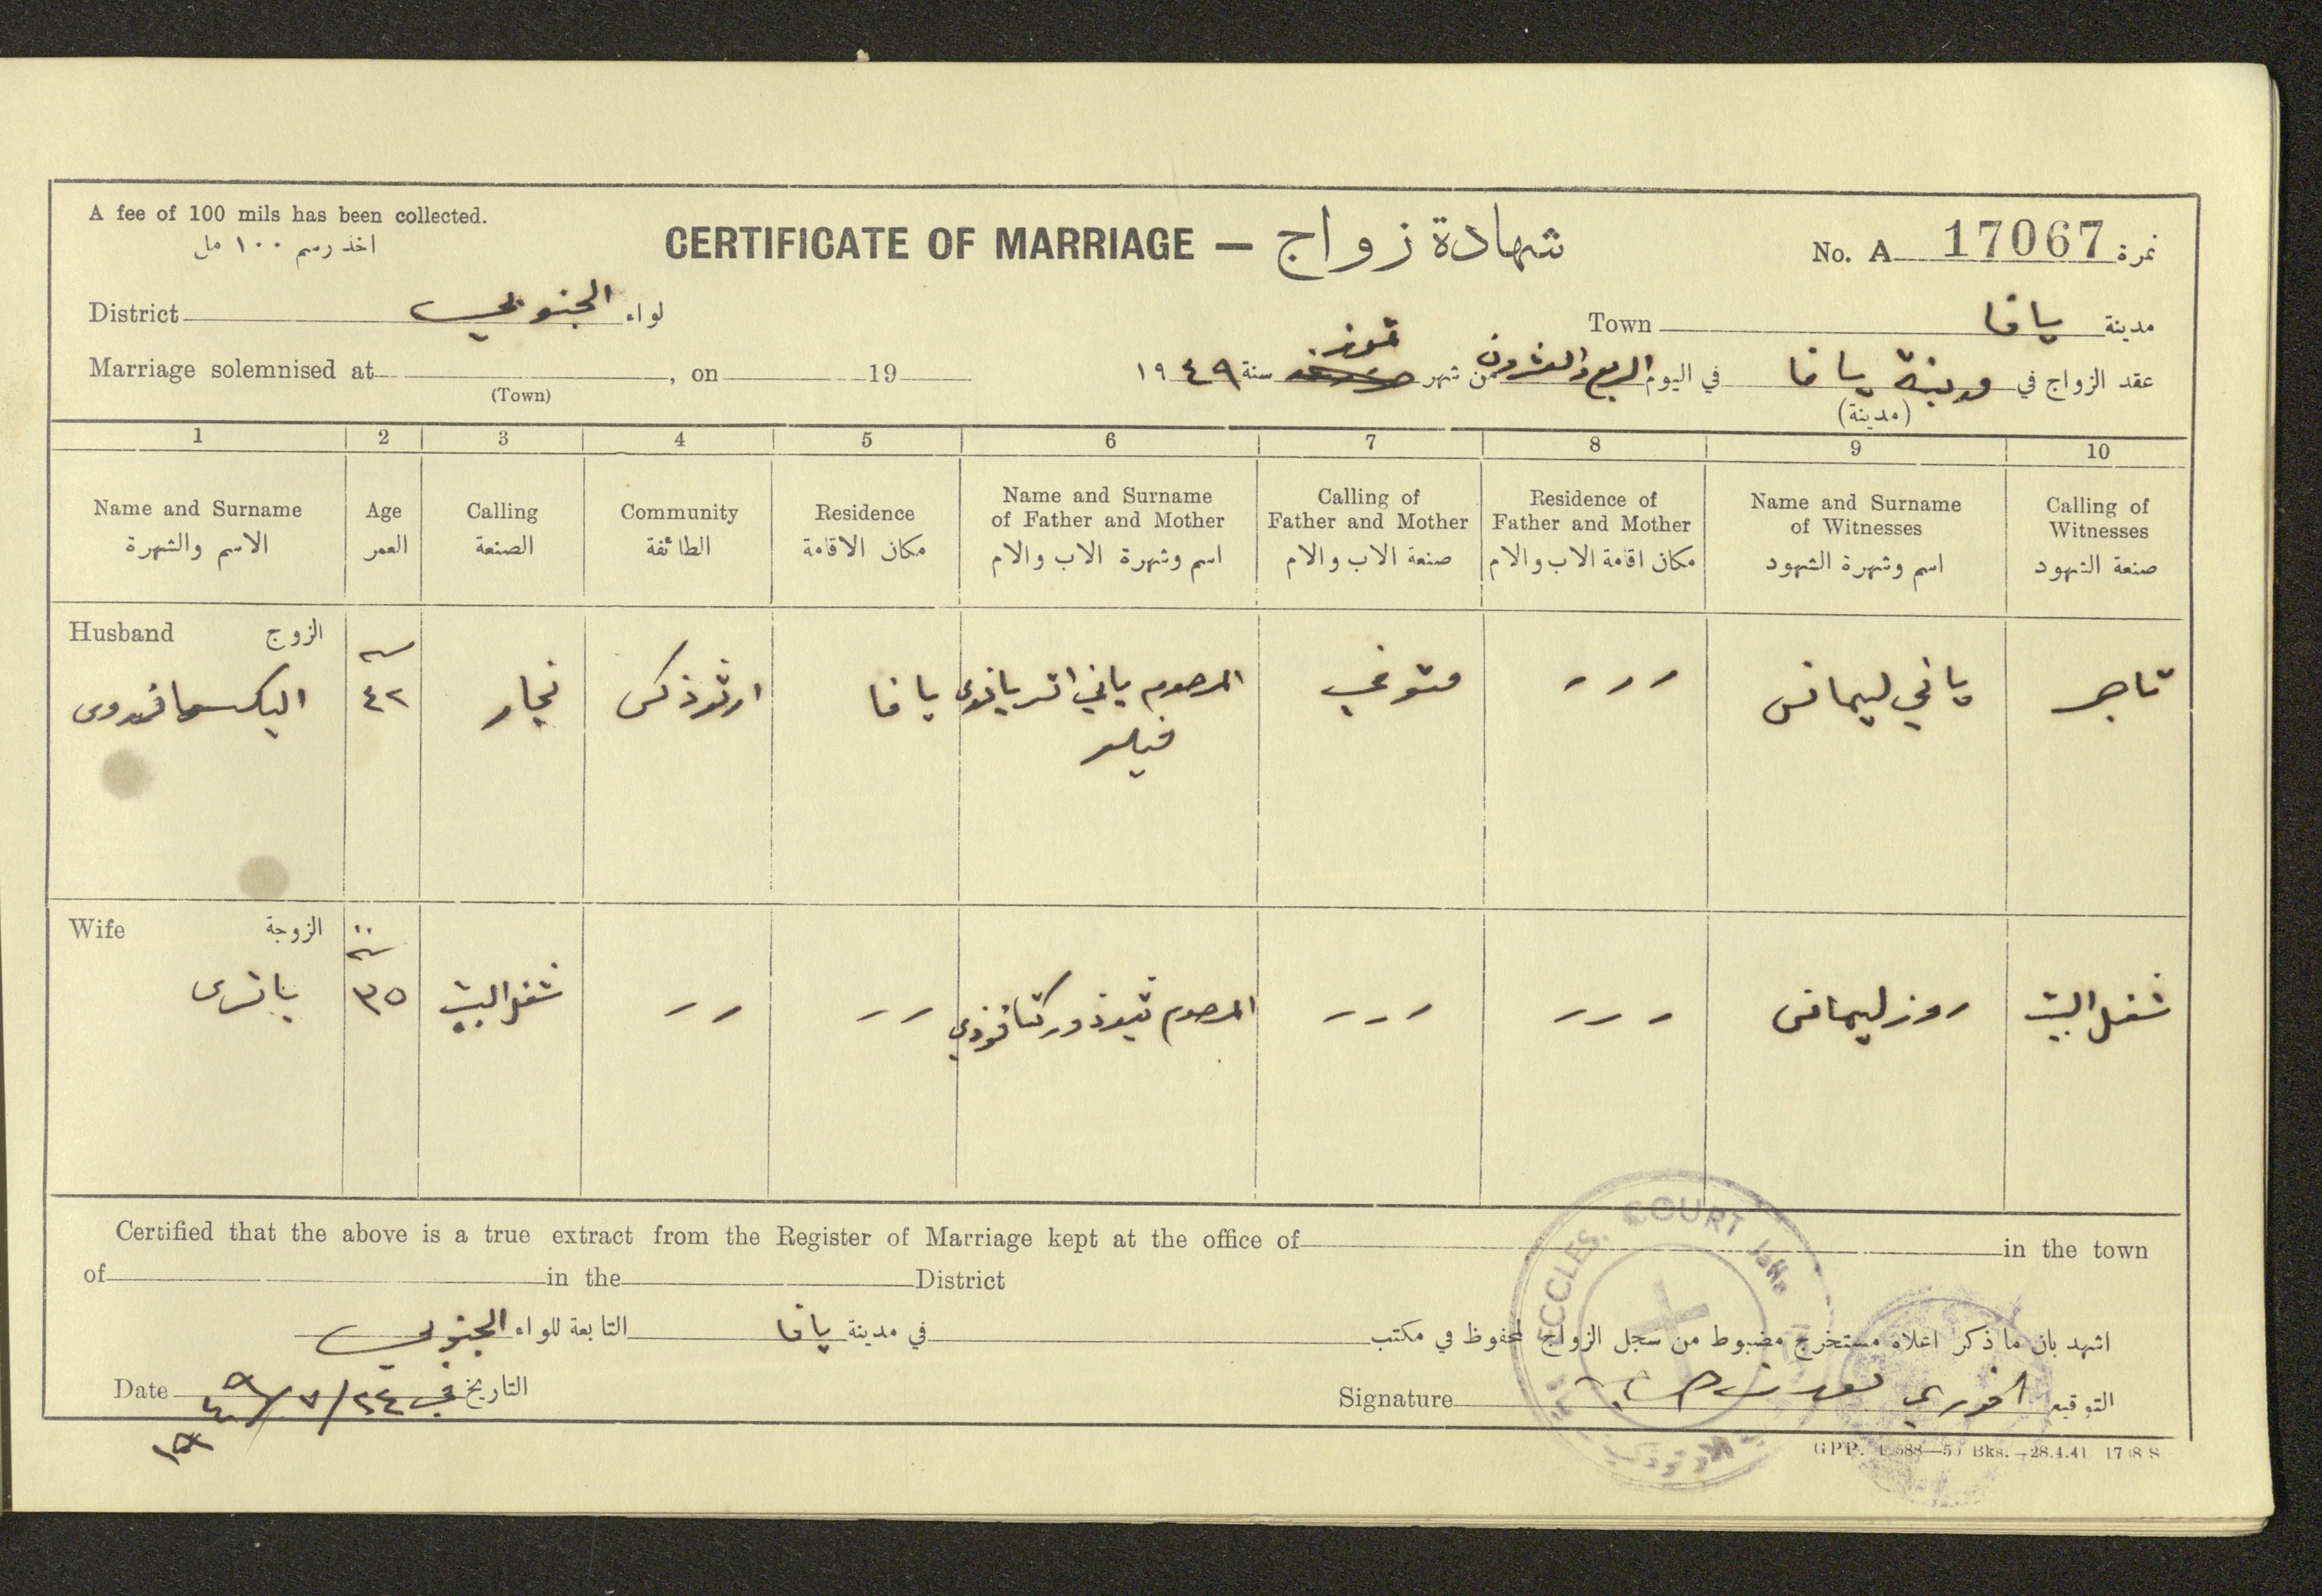 A fee of 100 mils has been collected.
اخذ رسم ١٠٠ مل
CERTIFICATE OF MARRIAGE — شهادة زواج
No. A 17067 نمرة
District الجنوبي لواء
Town يافا مدينة
Marriage solemnised at , on 19
(Town)
عقد الزواج في مدينة يافا في اليوم الربع والعشرون من شهر تموز سنة ١٩٤٩
(مدينة)
1 2 3 4 5 6 7 8 9 10
Name and Surname
الاسم والشهرة
Age
العمر
Calling
الصنعة
Community
الطائفة
Residence
مكان الاقامة
Name and Surname
of Father and Mother
اسم وشهرة الاب والام
Calling of
Father and Mother
صنعة الاب والام
Residence of
Father and Mother
مكان اقامة الاب والام
Name and Surname
of Witnesses
اسم وشهرة الشهود
Calling of
Witnesses
صنعة الشهود
Husband الزوج
سنه
٤٢
نجار
ارثوذكس
يافا
المرحوم ياني
متوفي
ياني ليمانس
تاجر
Wife الزوجة
سنة
٣٥
شغل البيت
المرحوم ثيوذور
روز ليمانس
شغل البيت
Certified that the above is a true extract from the Register of Marriage kept at the office of in the town
of in the District
اشهد بان ما ذكر اعلاه مستخرج مضبوط من سجل الزواج المحفوظ في مكتب في مدينة يافا التابعة للواء الجنوبي
Date التاريخ في ٢٤/٧/١٩٤٩
Signature الخوري التوقيع
ECCLES. COURT Jaffa
GPP. 28.4.41